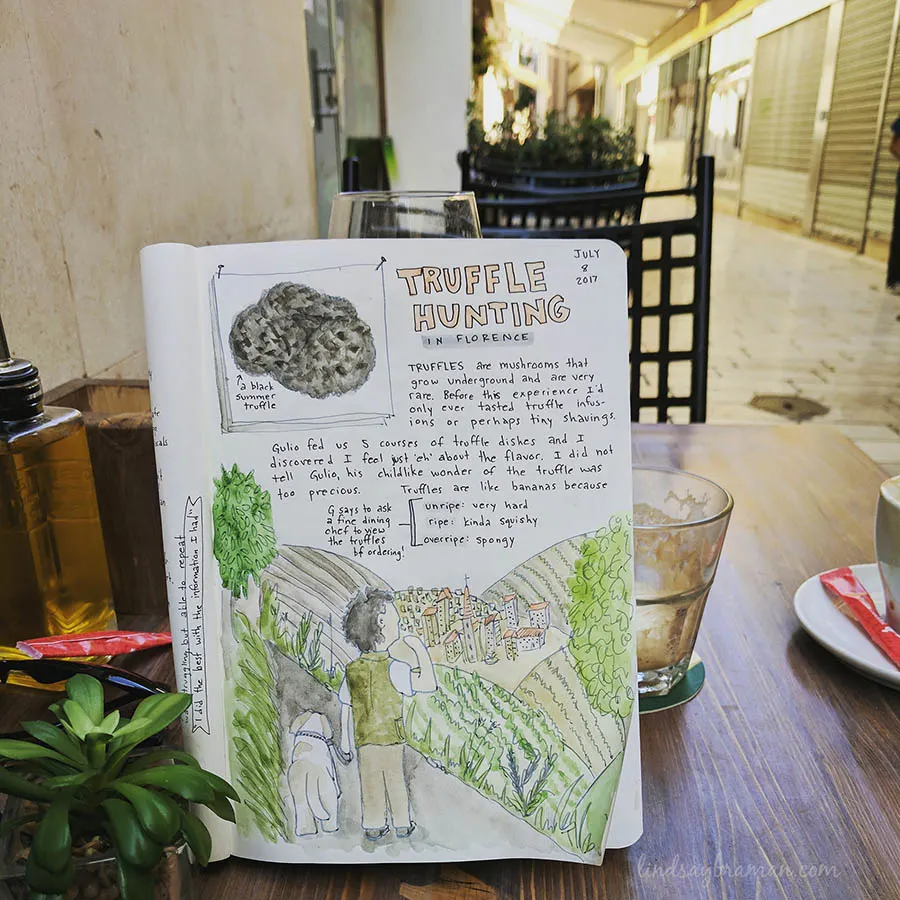 JULY
8
2017
TRUFFLE
HUNTING
IN FLORENCE
a black
summer
truffle
TRUFFLES are mushrooms that
grow underground and are very
rare. Before this experience I'd
only ever tasted truffle infus-
ions or perhaps tiny shavings.
Gulio fed us 5 courses of truffle dishes and I
discovered I feel just 'eh' about the flavor. I did not
tell Gulio, his childlike wonder of the truffle was
too precious. Truffles are like bananas because
G says to ask
a fine dining
chef to view
the truffles
bf ordering!
unripe: very hard
ripe: kinda squishy
overripe: spongy
struggling but able to repeat
"I did the best with the information I had"
lindsaybraman.com